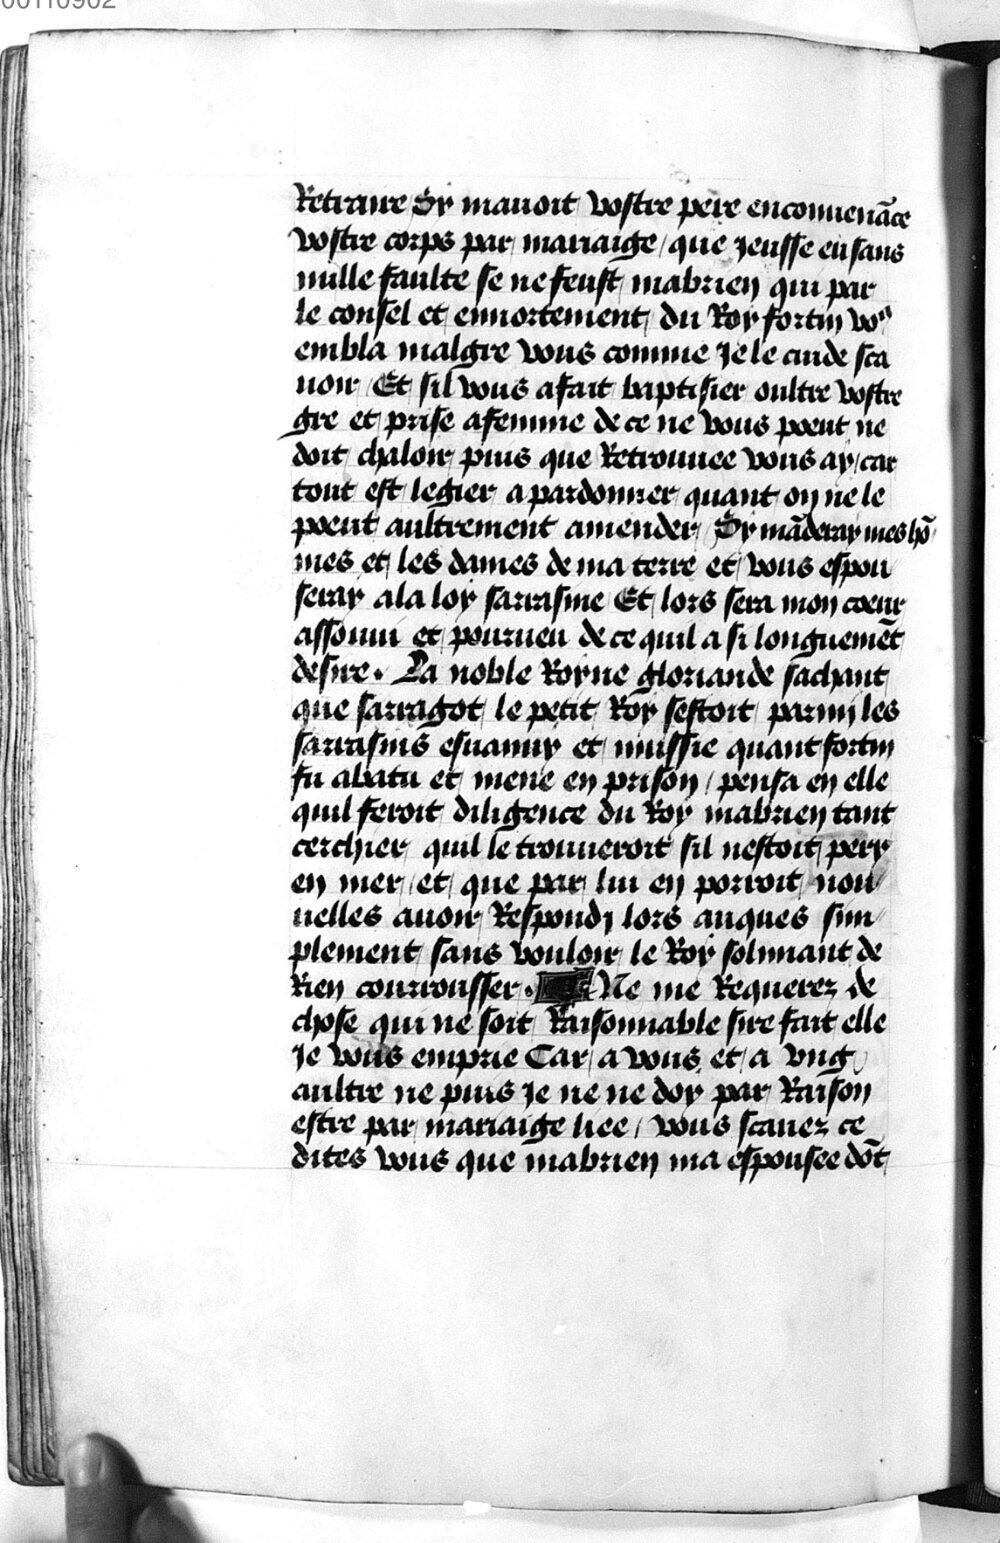 00110902
Retraire Sy mauoit vostre pere enconuenāce
vostre corps par mariaige / que jeusse eu sans
nulle faulte se ne feust mabrien qui par
le consel et ennortement du Roy fortin voꝰ
embla malgre vous comme Je le cuide sca
uoir Et sil vous a fait baptisier oultre vostre
gre et prise a femme de ce ne vous poeut ne
doit chaloir puis que Retrouuee vous ay / car
tout est legier a pardonner quant on ne le
poeut aultrement amender / Sy māderay mes hō
mes et les dames de ma terre et vous espou
seray a la loy sarrasine Et lors sera mon coeur
assouui et pourueu de ce quil a si longuemēt
desire . La noble Royne gloriande sachant
que sarragot le petit Roy sestoit parmy les
sarrasins esuanuy et mussie quant fortin
fu abatu et mene en prison / pensa en elle
quil feroit diligence du Roy mabrien tant
cerchier quil le trouueroit sil nestoit pery
en mer / et que par lui en porroit nou
uelles auoir Respondy lors auques sim
plement sans vouloir le Roy solimant de
Rien courrousser . Ne me Requerez de
chose qui ne soit Raisonnable sire fait elle
Je vous emprie Car a vous et a vng
aultre ne puis Je ne ne doy par Raison
estre par mariaige liee / vous scauez ce
dites vous que mabrien ma espousee dōt